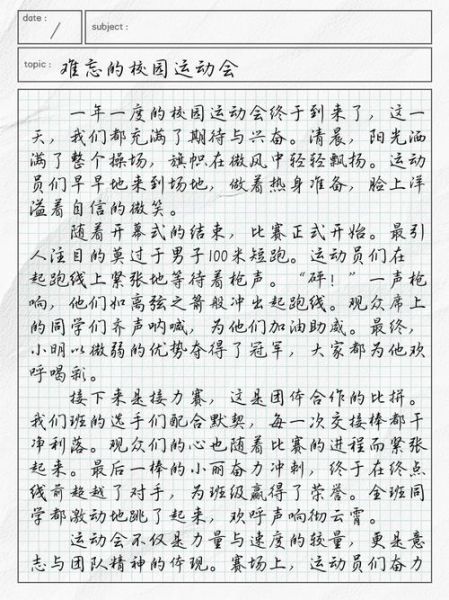 date :
subject :
topic : 难忘的校园运动会
一年一度的校园运动会终于到来了，这一
天，我们都充满了期待与兴奋。清晨，阳光洒
满了整个操场，旗帜在微风中轻轻飘扬。运动
员们早早地来到场地，做着热身准备，脸上洋
溢着自信的微笑。
随着开幕式的结束，比赛正式开始。最引
人注目的莫过于男子100米短跑。运动员们在
起跑线上紧张地等待着枪声。“砰！”一声枪
响，他们如离弦之箭般冲出起跑线。观众席上
的同学们齐声呐喊，为他们加油助威。最终，
小明以微弱的优势夺得了冠军，大家都为他欢
呼喝彩。
接下来是接力赛，这是团体合作的比拼。
我们班的选手们配合默契，每一次交接棒都干
净利落。观众们的心也随着比赛的进程而紧张
起来。最后一棒的小丽奋力冲刺，终于在终点
线前超越了对手，为班级赢得了荣誉。全班同
学都激动地跳了起来，欢呼声响彻云霄。
运动会不仅是力量与速度的较量，更是意
志与团队精神的体现。赛场上，运动员们奋力